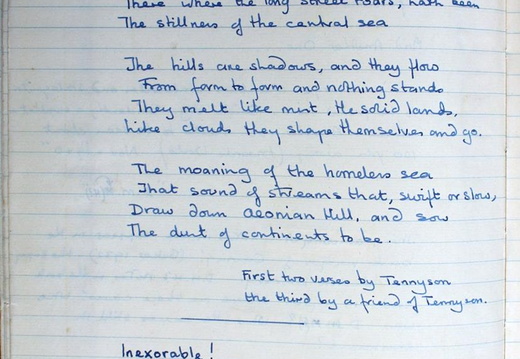 There where the long street roars, hath been
The stillness of the central sea
The hills are shadows, and they flow
From form to form and nothing stands
They melt like mist, the solid lands,
Like clouds they shape themselves and go.
The moaning of the homeless sea
That sound of streams that, swift or slow,
Draw down Aeonian Hill, and sow
The dust of continents to be.
First two verses by Tennyson
the third by a friend of Tennyson.
Inexorable!